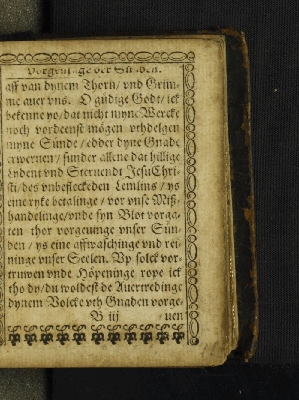 vorgeuinge der Sünden.
aff van dynem Thorn/ vnd Grim-
me auer vns. O güdige Godt/ ick
bekenne yo/ dat nicht myne Wercke
noch vordeenst mögen vthdelgen
myne Sünde/ edder dyne Gnade
erwernen/ sunder allene dat hillige
Lydent vnd Steruendt JesuChri-
sti/ des vnbefleckeden Lemlins/ ys
eine ryke betalinge/ vor vnse Miß-
handelinge/ vnde syn Blot vorga-
ten thor vorgeuinge vnser Sün-
den/ ys eine affwaschinge vnd rei-
ninge vnser Seelen. Vp solck vor-
truwen vnde Höpeninge rope ick
tho dy/ du woldest de Auertredinge
dynem Volcke vth Gnaden vorge-
B iij
uen